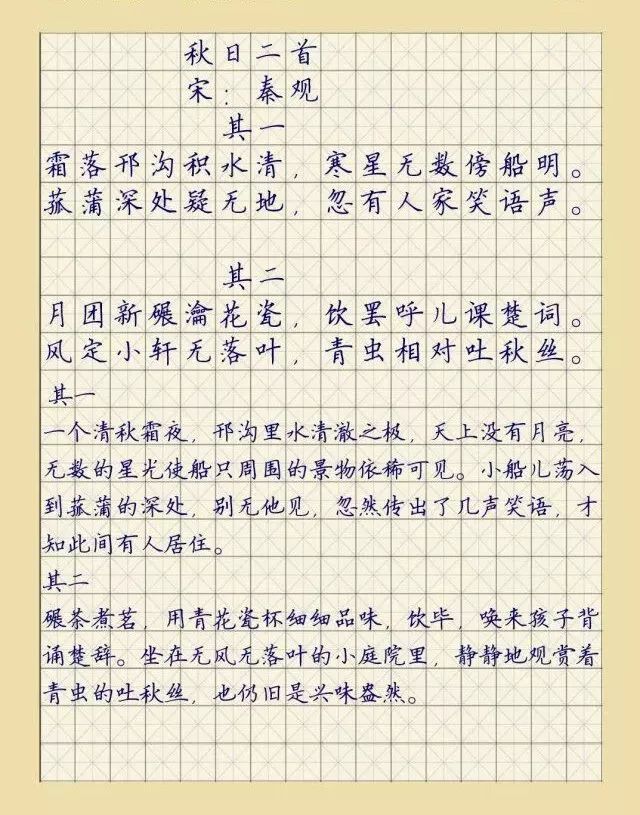 秋日二首
宋：秦观
其一
霜落邗沟积水清，寒星无数傍船明。
菰蒲深处疑无地，忽有人家笑语声。
其二
月团新碾瀹花瓷，饮罢呼儿课楚词。
风定小轩无落叶，青虫相对吐秋丝。
其一
一个清秋霜夜，邗沟里水清澈之极，天上没有月亮，
无数的星光使船只周围的景物依稀可见。小船儿荡入
到菰蒲的深处，别无他见，忽然传出了几声笑语，才
知此间有人居住。
其二
碾茶煮茗，用青花瓷杯细细品味，饮毕，唤来孩子背
诵楚辞。坐在无风无落叶的小庭院里，静静地观赏着
青虫的吐秋丝，也仍旧是兴味盎然。